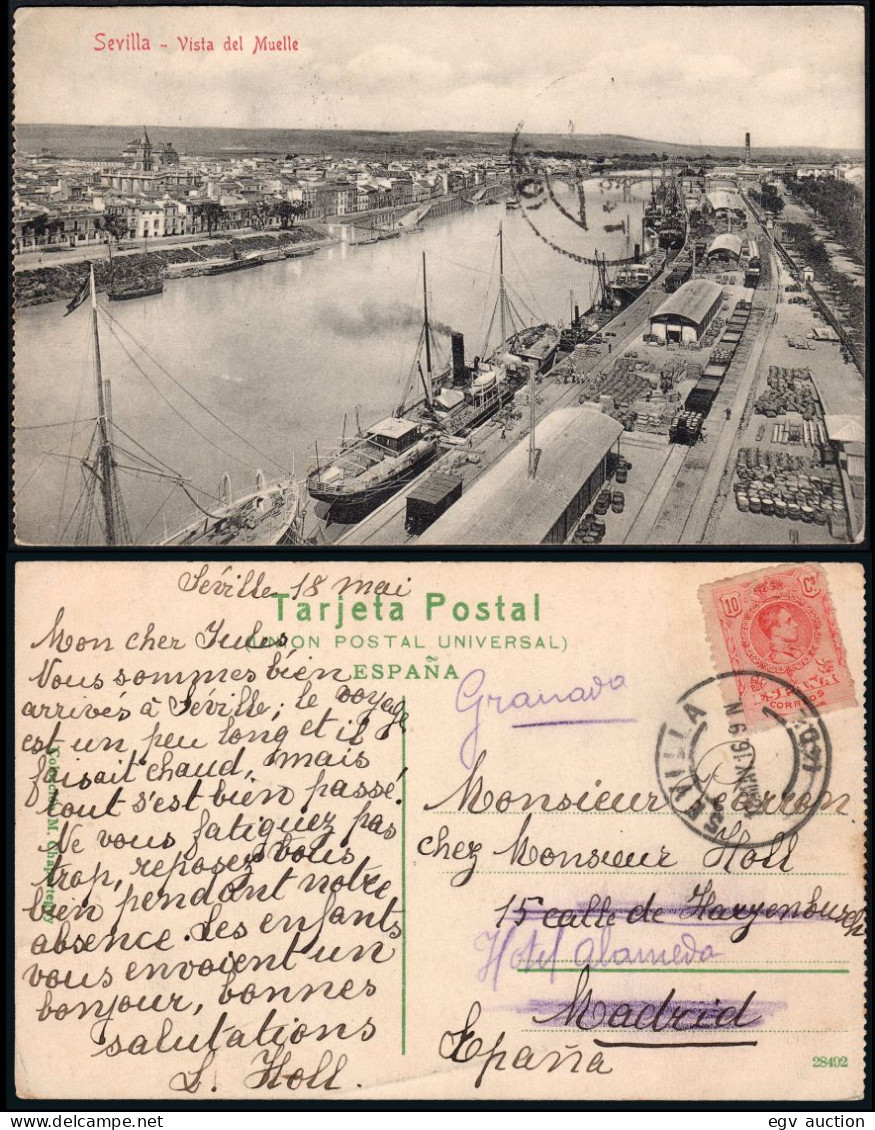 Sevilla - Vista del Muelle
Séville 18 mai
Tarjeta Postal
(UNION POSTAL UNIVERSAL)
ESPAÑA
Mon cher Jules
Vous sommes bien
arrivés à Séville; le voyage
est un peu long et il
faisait chaud, mais
tout s'est bien passé.
Ne vous fatiguez pas
trop, reposez vous
bien pendant notre
absence. Les enfants
vous envoient un
bonjour, bonnes
salutations
L. Holl.
Granada
10 Cs
CORREOS
SEVILLA
Monsieur
chez Monsieur Holl
15 calle de
Hotel Alameda
Madrid
España
28492
egv auction